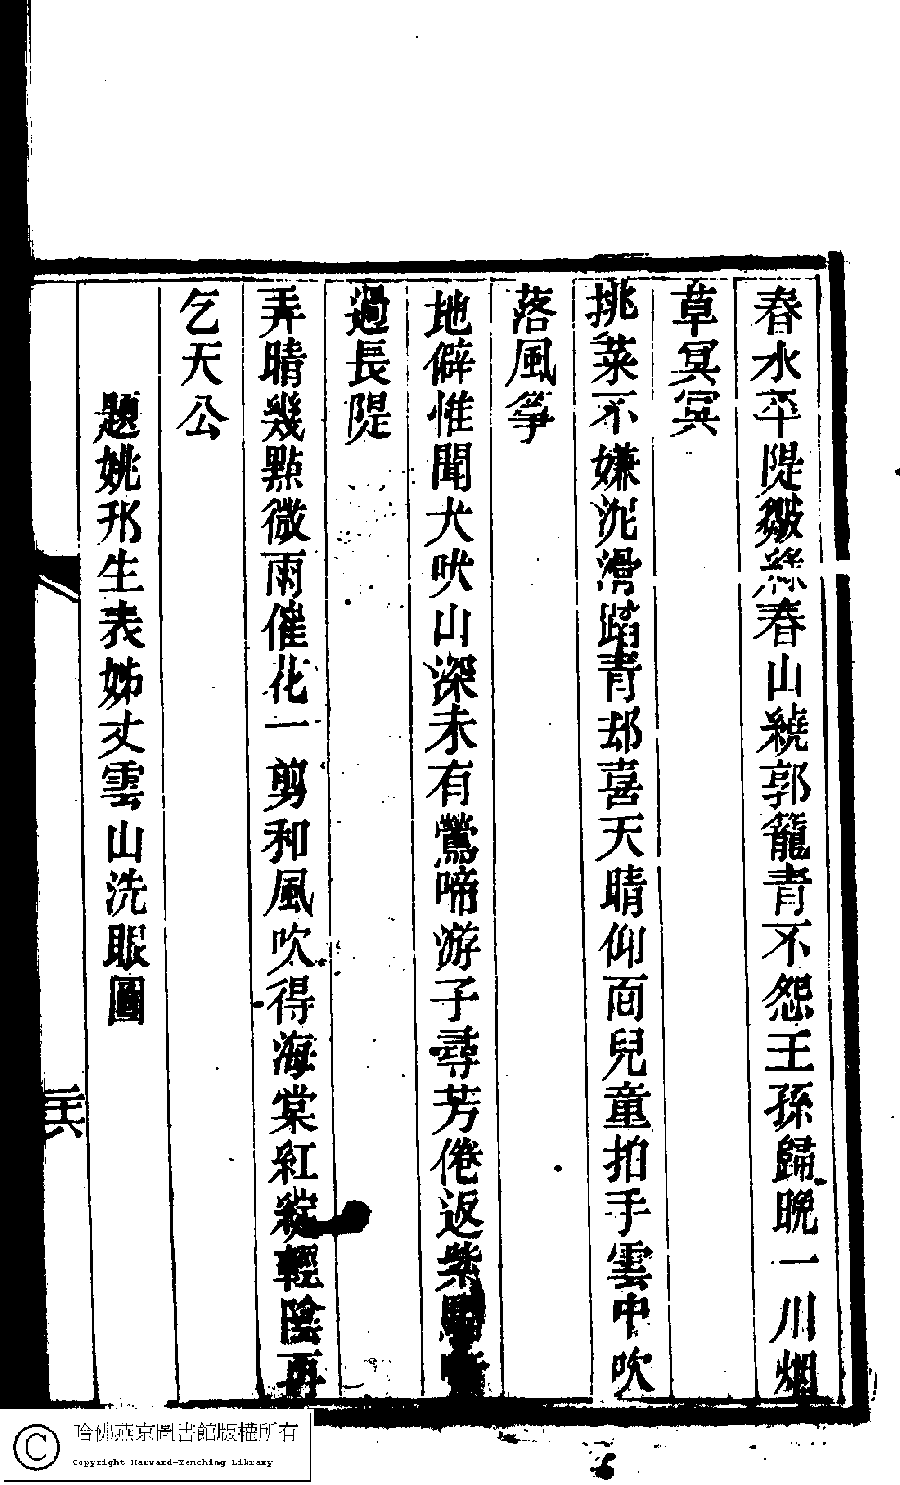 春水平隄皺綠春山繞郭籠青不怨王孫歸晩一川烟
草冥冥
挑菜不嫌泥滑踏青却喜天晴仰面兒童拍手雲中吹
落風箏
地僻惟聞犬吠山深未有鶯啼游子尋芳倦返紫騮嘶
過長隄
弄晴幾點微雨催花一剪和風吹得海棠紅綻輕陰再
乞天公
題姚邘生表姊丈雲山洗眼圖
二十六
哈佛燕京圖書館版權所有
Copyright Harvard-Yenching Library